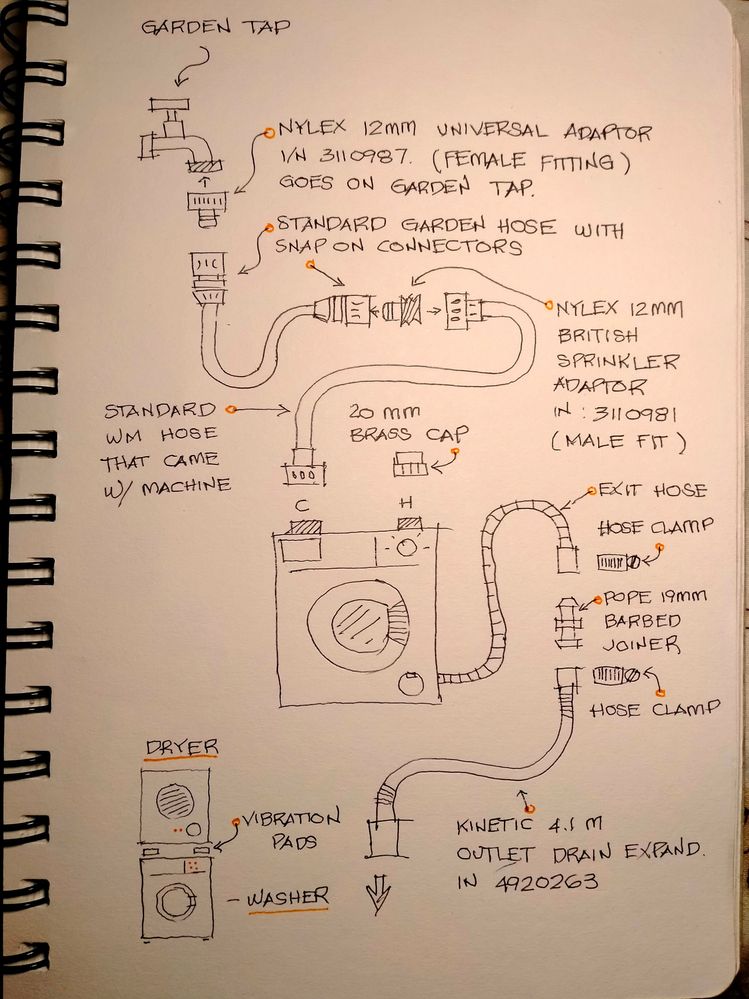 GARDEN TAP
NYLEX 12MM UNIVERSAL ADAPTOR
I/N 3110987. (FEMALE FITTING)
GOES ON GARDEN TAP.
STANDARD GARDEN HOSE WITH
SNAP ON CONNECTORS
NYLEX 12MM
BRITISH
SPRINKLER
ADAPTOR
IN: 3110981
(MALE FIT)
STANDARD
WM HOSE
THAT CAME
W/ MACHINE
20 MM
BRASS CAP
C
H
EXIT HOSE
HOSE CLAMP
POPE 19MM
BARBED
JOINER
HOSE CLAMP
DRYER
VIBRATION
PADS
- WASHER
KINETIC 4.1 M
OUTLET DRAIN EXPAND.
IN 4920263